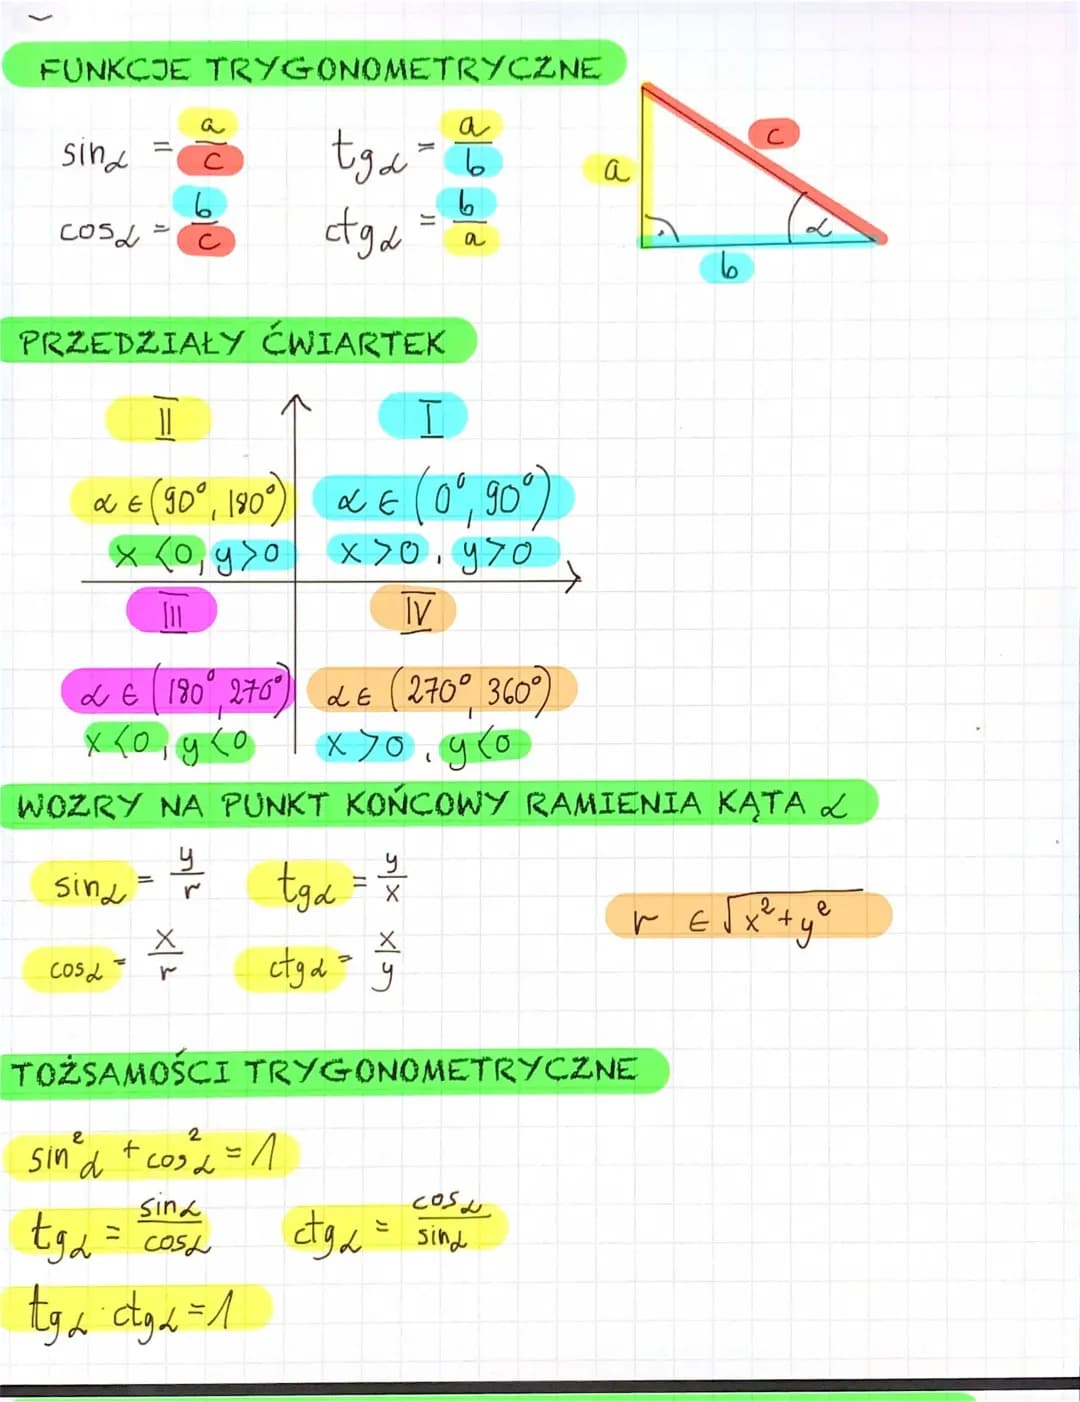 FUNKCJE TRYGONOMETRYCZNE
sinα = a/c
tgα = a/b
cosα = b/c
ctgα = b/a
a
c
α
b
PRZEDZIAŁY ĆWIARTEK
II
I
α ∈ (90°, 180°)
α ∈ (0°, 90°)
x <0, y>0
x>0, y>0
III
IV
α ∈ (180°, 270°)
α ∈ (270°, 360°)
x <0, y<0
x >0, y<0
WOZRY NA PUNKT KOŃCOWY RAMIENIA KĄTA α
sinα = y/r
tgα = y/x
r ∈ √x²+y²
cosα = x/r
ctgα = x/y
TOŻSAMOŚCI TRYGONOMETRYCZNE
sin²α + cos²α = 1
tgα = sinα/cosα
ctgα = cosα/sinα
tgα · ctgα = 1